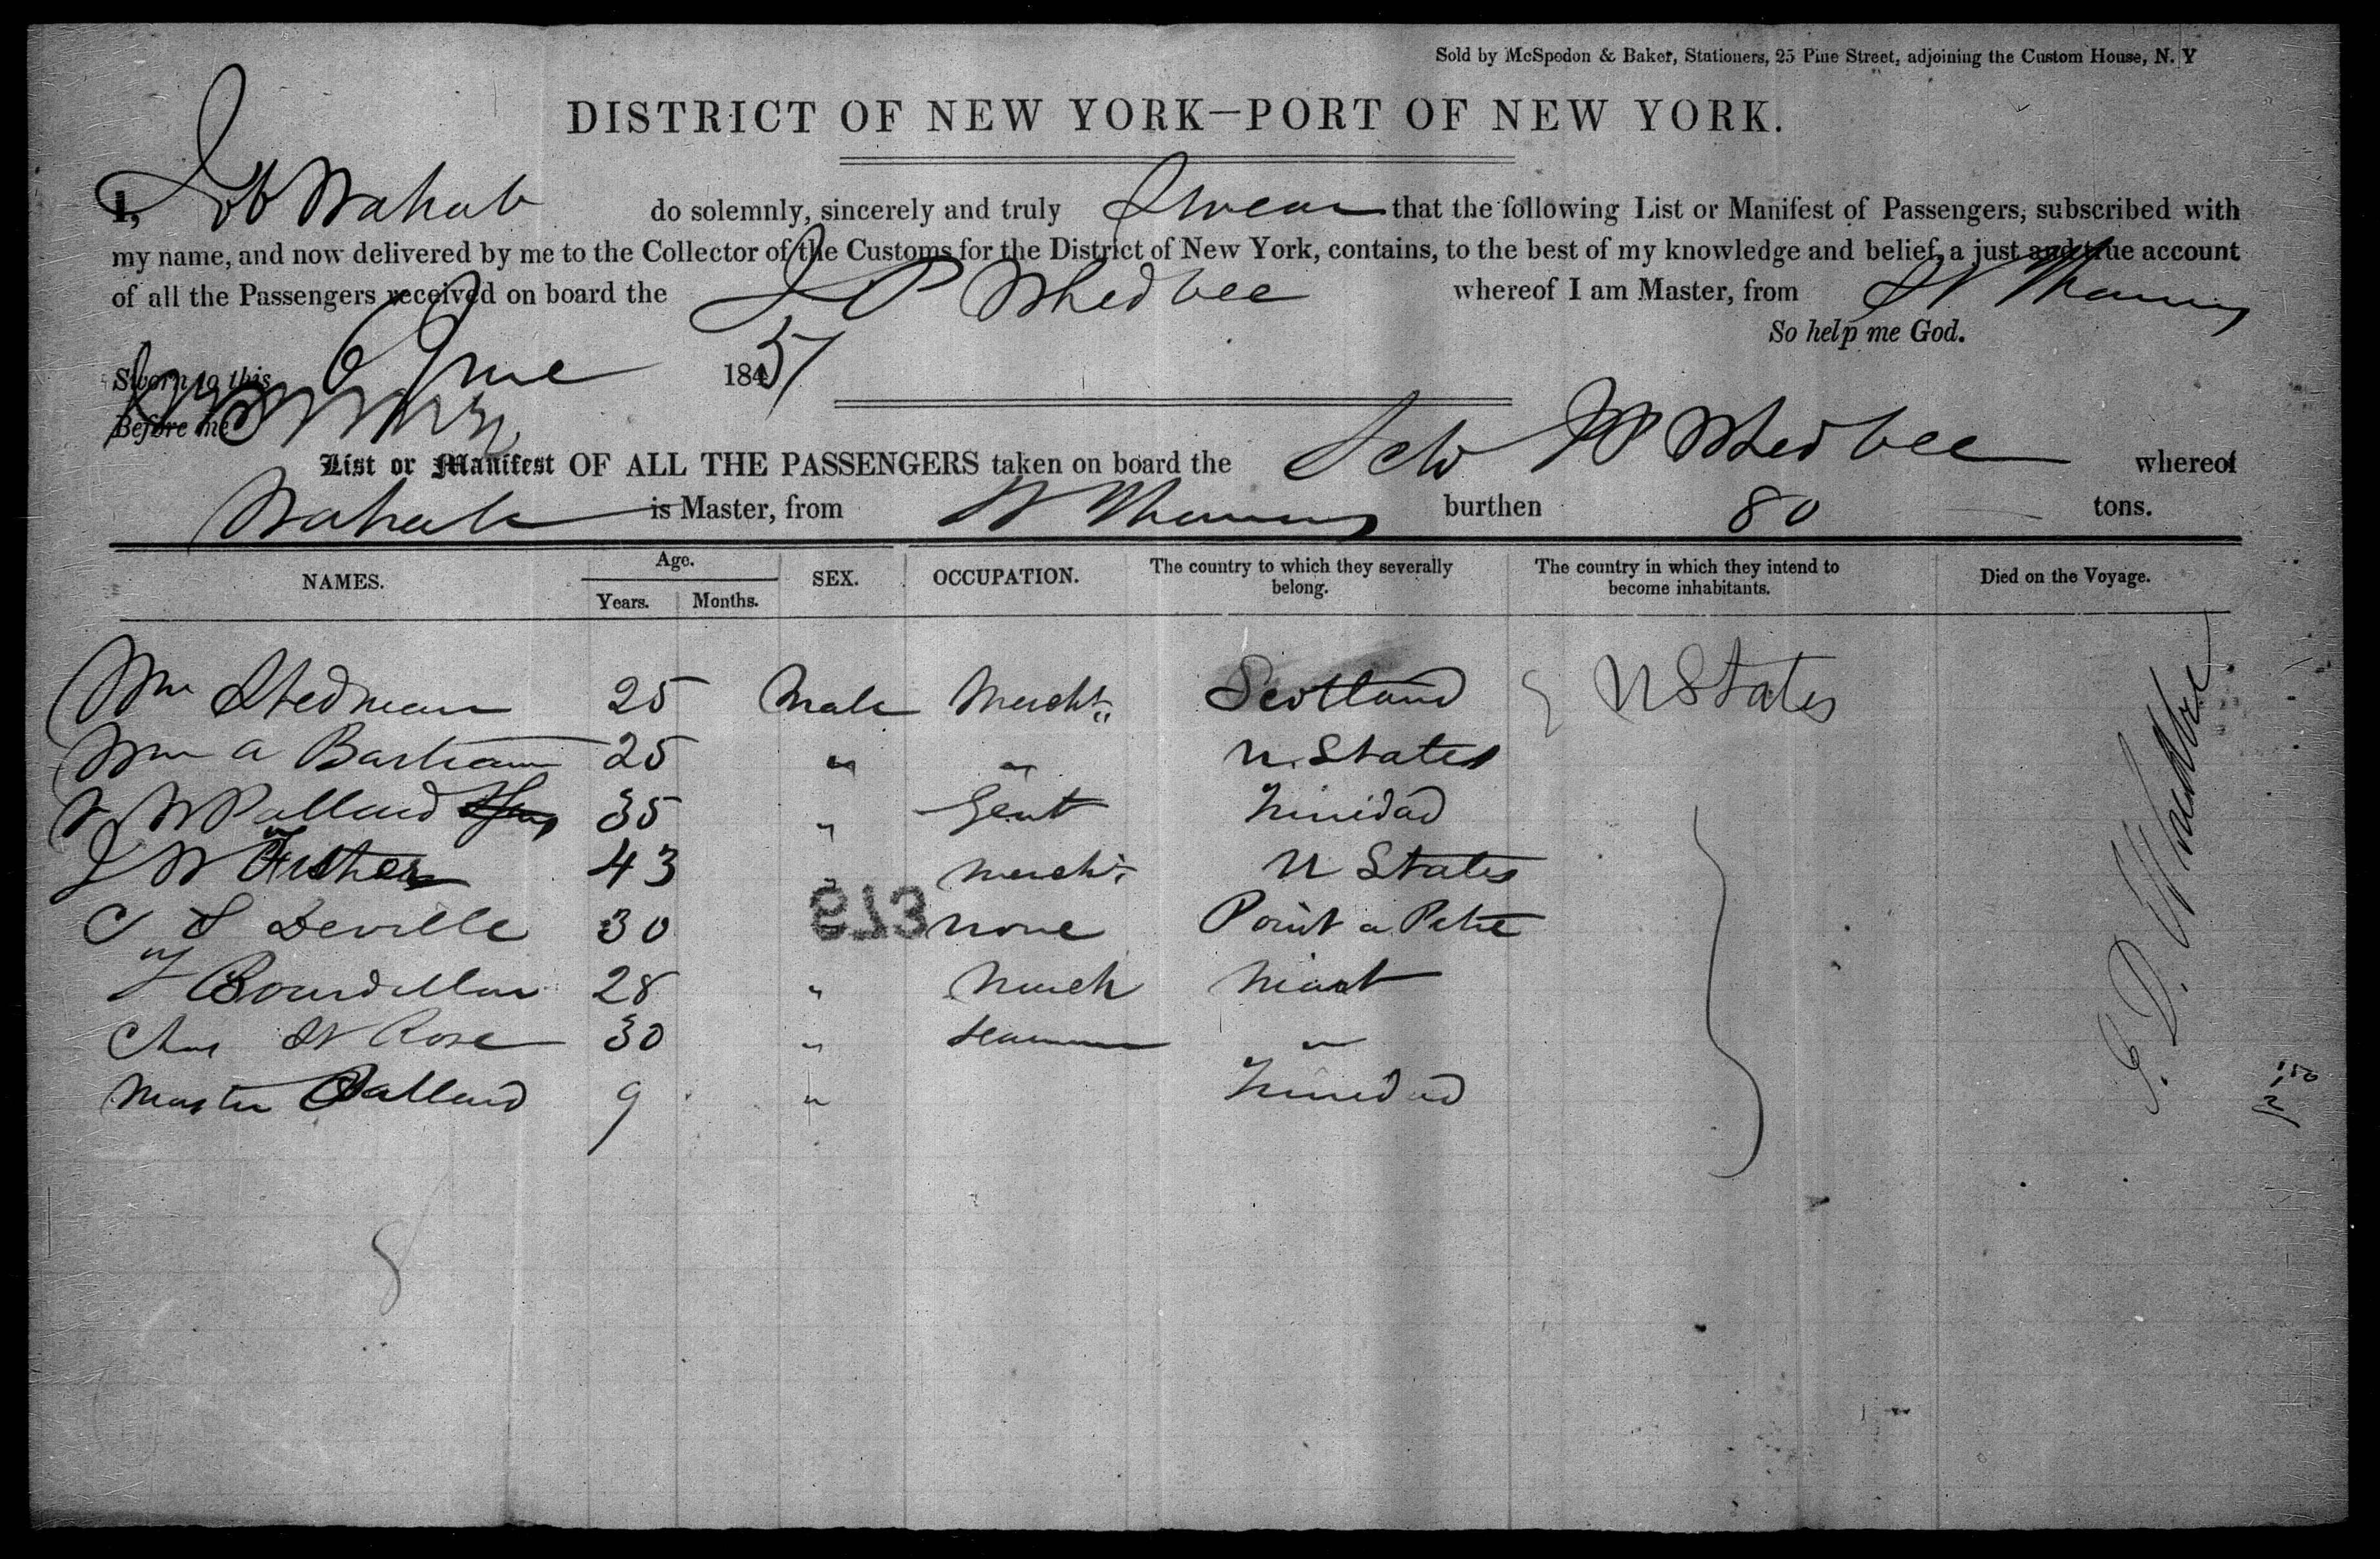 Sold by McSpedon & Baker, Stationers, 25 Pine Street, adjoining the Custom House, N. Y
DISTRICT OF NEW YORK—PORT OF NEW YORK.
I, Job Wahab do solemnly, sincerely and truly Swear that the following List or Manifest of Passengers, subscribed with
my name, and now delivered by me to the Collector of the Customs for the District of New York, contains, to the best of my knowledge and belief, a just and true account
of all the Passengers received on board the J P Whedbee whereof I am Master, from St Thomas
So help me God.
Sworn to this 6 June 1851
Before me
List or Manifest OF ALL THE PASSENGERS taken on board the Schr JP Whedbee whereof
Wahab is Master, from St Thomas burthen 80 tons.
NAMES. Age. Years. Months. SEX. OCCUPATION. The country to which they severally belong. The country in which they intend to become inhabitants. Died on the Voyage.
Wm Stedman 25 Male Mercht Scotland U States
Wm A Bartram 25 " " U. States
W Pollard 35 " Gent Trinidad
J W Fisher 43 " Mercht U States
C S Deville 30 none Point a Petre
Bourdillon 28 " Merch Mart
Chas St Rose 30 " Seaman "
Master Pallard 9 " Trinidad
513
8